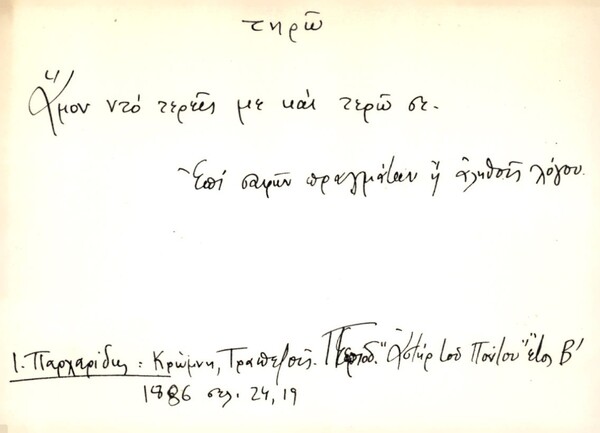 τηρῶ
Ἄμον ντό τερεῖς με καὶ τερῶ σε.
Ἐπί σαφῶν πραγμάτων ἤ ἀληθοῦς λόγου.
Ι. Παρχαρίδης: Κρώμνη, Τραπεζοῦς. Περιοδ. "Ἀστήρ τοῦ Πόντου" ἔτος Β'
1886 σελ. 24, 19